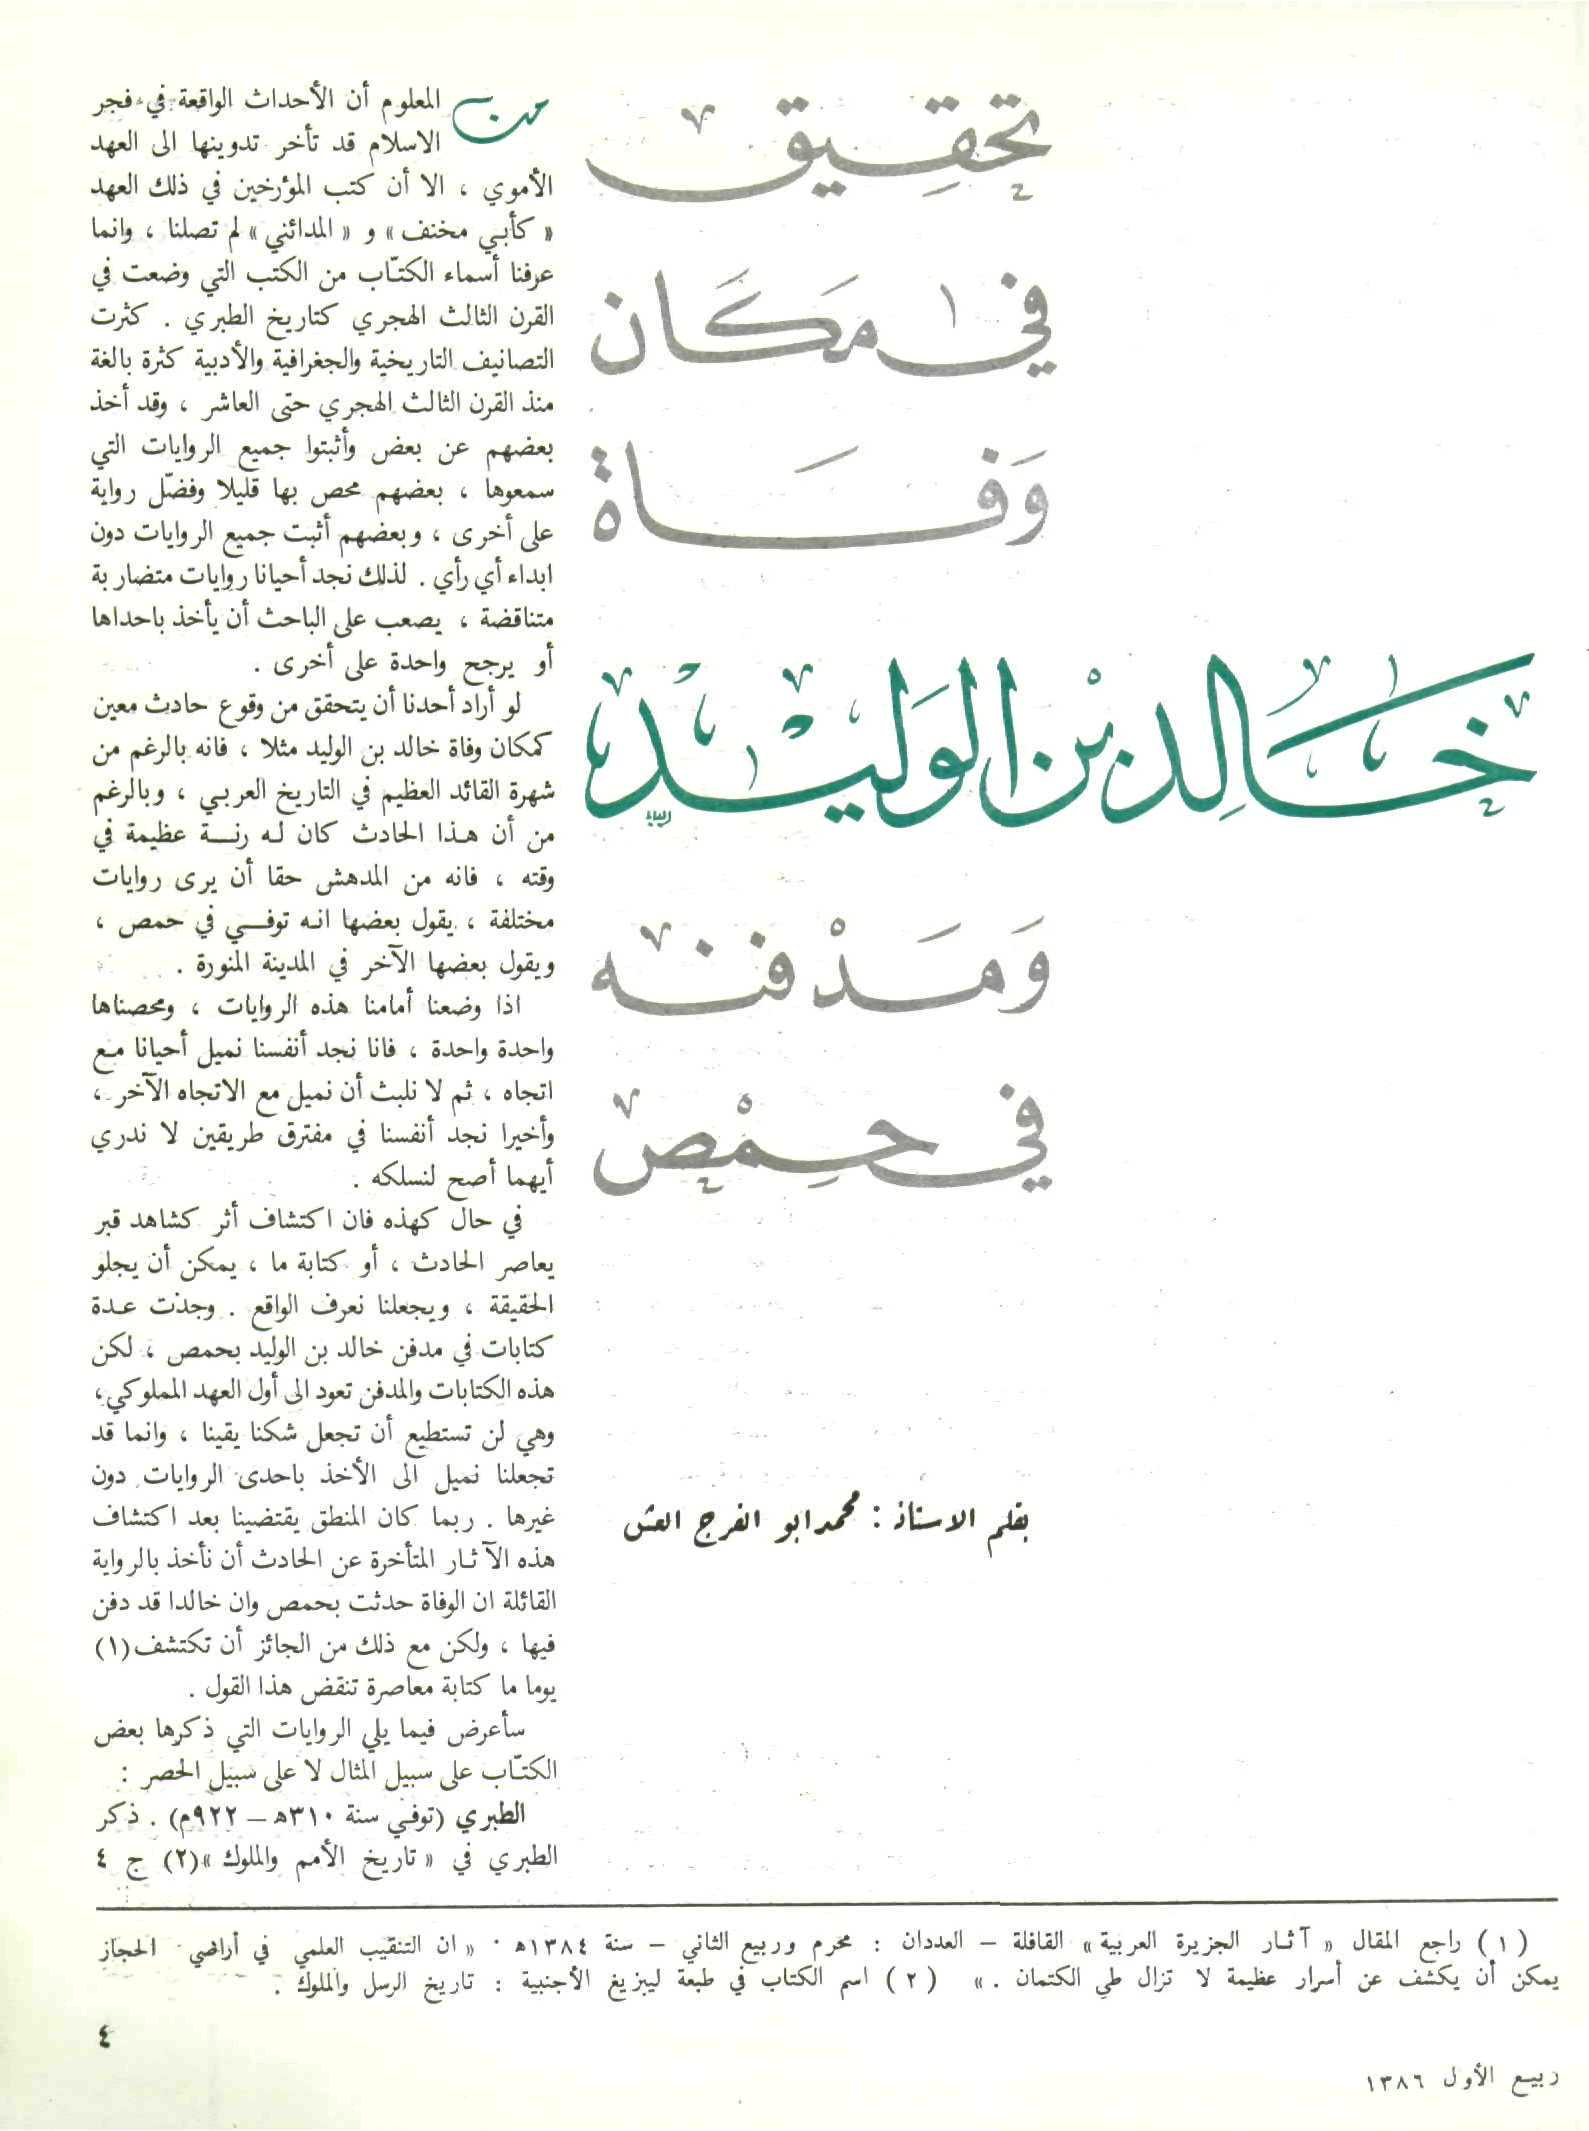 تحقيق
في مكان
وفاة
خالد بن الوليد
ومدفنه
في حمص
بقلم الاستاذ : محمد ابو الفرج العش
من المعلوم أن الأحداث الواقعة في فجر
الاسلام قد تأخر تدوينها الى العهد
الأموي ، الا أن كتب المؤرخين في ذلك العهد
« كأبي مخنف » و « المدائني » لم تصلنا ، وانما
عرفنا أسماء الكتّاب من الكتب التي وضعت في
القرن الثالث الهجري كتاريخ الطبري . كثرت
التصانيف التاريخية والجغرافية والأدبية كثرة بالغة
منذ القرن الثالث الهجري حتى العاشر ، وقد أخذ
بعضهم عن بعض وأثبتوا جميع الروايات التي
سمعوها ، بعضهم محص بها قليلا وفضّل رواية
على أخرى ، وبعضهم أثبت جميع الروايات دون
ابداء أي رأي . لذلك نجد أحيانا روايات متضاربة
متناقضة ، يصعب على الباحث أن يأخذ باحداها
أو يرجح واحدة على أخرى .
لو أراد أحدنا أن يتحقق من وقوع حادث معين
كمكان وفاة خالد بن الوليد مثلا ، فانه بالرغم من
شهرة القائد العظيم في التاريخ العربي ، وبالرغم
من أن هذا الحادث كان له رنة عظيمة في
وقته ، فانه من المدهش حقا أن يرى روايات
مختلفة ، يقول بعضها انه توفي في حمص ،
ويقول بعضها الآخر في المدينة المنورة .
اذا وضعنا أمامنا هذه الروايات ، ومحصناها
واحدة واحدة ، فانا نجد أنفسنا نميل أحيانا مع
اتجاه ، ثم لا نلبث أن نميل مع الاتجاه الآخر ،
وأخيرا نجد أنفسنا في مفترق طريقين لا ندري
أيهما أصح لنسلكه .
في حال كهذه فان اكتشاف أثر كشاهد قبر
يعاصر الحادث ، أو كتابة ما ، يمكن أن يجلو
الحقيقة ، ويجعلنا نعرف الواقع . وجذت عدة
كتابات في مدفن خالد بن الوليد بحمص ، لكن
هذه الكتابات والمدفن تعود الى أول العهد المملوكي ،
وهي لن تستطيع أن تجعل شكنا يقينا ، وانما قد
تجعلنا نميل الى الأخذ باحدى الروايات دون
غيرها . ربما كان المنطق يقتضينا بعد اكتشاف
هذه الآثار المتأخرة عن الحادث أن نأخذ بالرواية
القائلة ان الوفاة حدثت بحمص وان خالدا قد دفن
فيها ، ولكن مع ذلك من الجائز أن تكتشف (١)
يوما ما كتابة معاصرة تنقض هذا القول .
سأعرض فيما يلي الروايات التي ذكرها بعض
الكتّاب على سبيل المثال لا على سبيل الحصر :
الطبري (توفي سنة ٣١٠هـ – ٩٢٢م) . ذكر
الطبري في « تاريخ الأمم والملوك »(٢) ج ٤
(١) راجع المقال « آثار الجزيرة العربية » القافلة – العددان : محرم وربيع الثاني – سنة ١٣٨٤هـ . « ان التنقيب العلمي في أراضي الحجاز
يمكن أن يكشف عن أسرار عظيمة لا تزال طي الكتمان . » (٢) اسم الكتاب في طبعة ليبزيغ الأجنبية : تاريخ الرسل والملوك .
٤
ربيع الأول ١٣٨٦